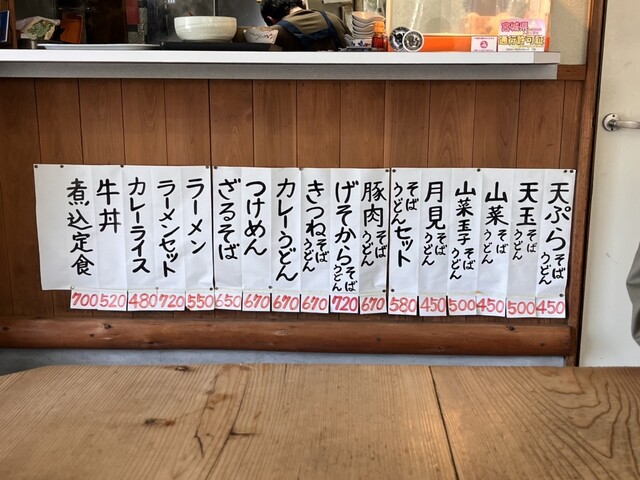 天ぷらそばうどん
450
天玉そばうどん
500
山菜そばうどん
450
山菜玉子そばうどん
500
月見そばうどん
450
そばうどんセット
580
豚肉そばうどん
670
げそからそばうどん
720
きつねそばうどん
670
カレーうどん
670
つけめん
670
ざるそば
650
ラーメン
550
ラーメンセット
720
カレーライス
480
牛丼
520
煮込定食
700
宮城県
通行許可証